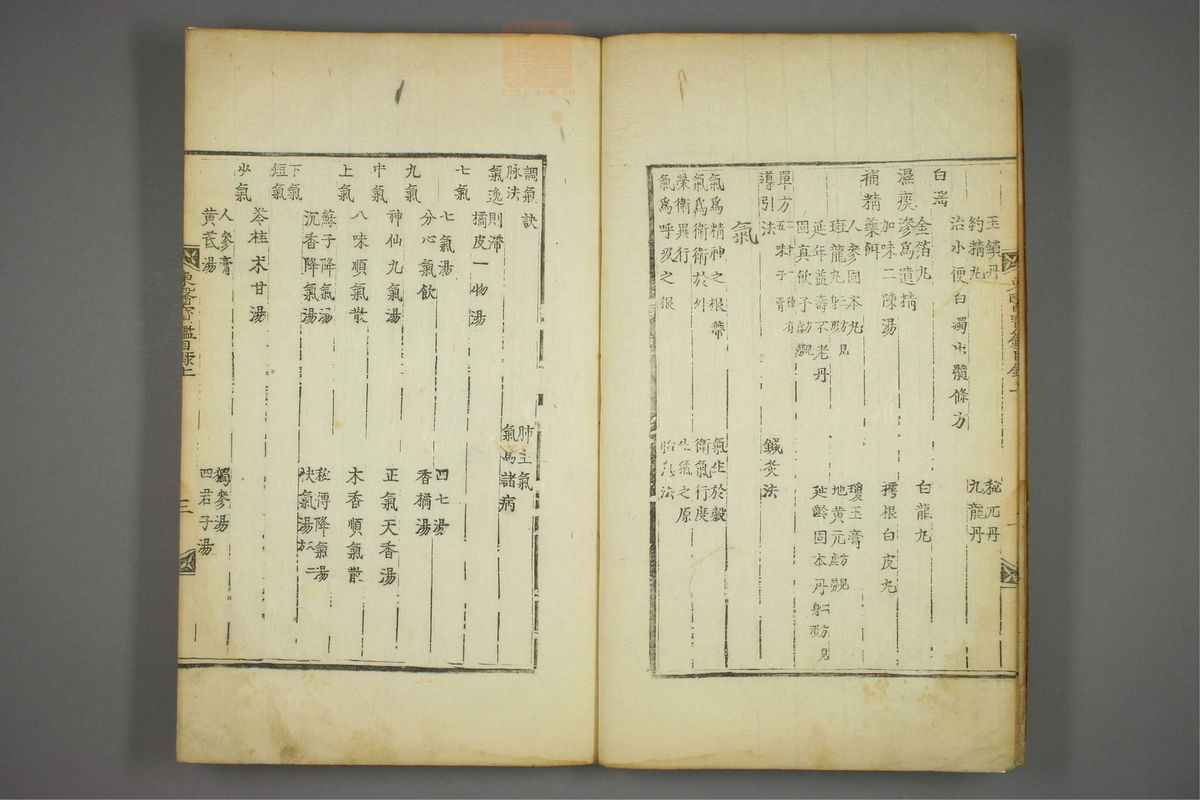 玉鎖丹
約精丸
秘元丹
九龍丹
治小便白濁出髓條方
白淫
金箔丸
白龍丸
濕痰滲爲遺精
加味二陳湯
樗根白皮丸
補精藥餌
人參固本丸
瓊玉膏
斑龍丸二方見身形
地黃元
延年益壽不老丹
延齡固本丹二方見身形
固真飲子
單方
五味子膏
導引法
鍼灸法
氣
氣爲精神之根蔕
氣生於穀
氣爲衛衛於外
衛氣行度
榮衛異行
生氣之原
氣爲呼吸之根
胎息法
調氣訣
肺主氣
脉法
氣爲諸病
氣逸則滯
橘皮一物湯
七氣
七氣湯
四七湯
分心氣飮
香橘湯
九氣
神仙九氣湯
正氣天香湯
中氣
八味順氣散
木香順氣散
上氣
蘇子降氣湯
秘傳降氣湯
沉香降氣湯
快氣湯方二
下氣
短氣
苓桂朮甘湯
少氣
人參膏
獨參湯
黃芪湯
四君子湯
東醫寶鑑目錄上
三